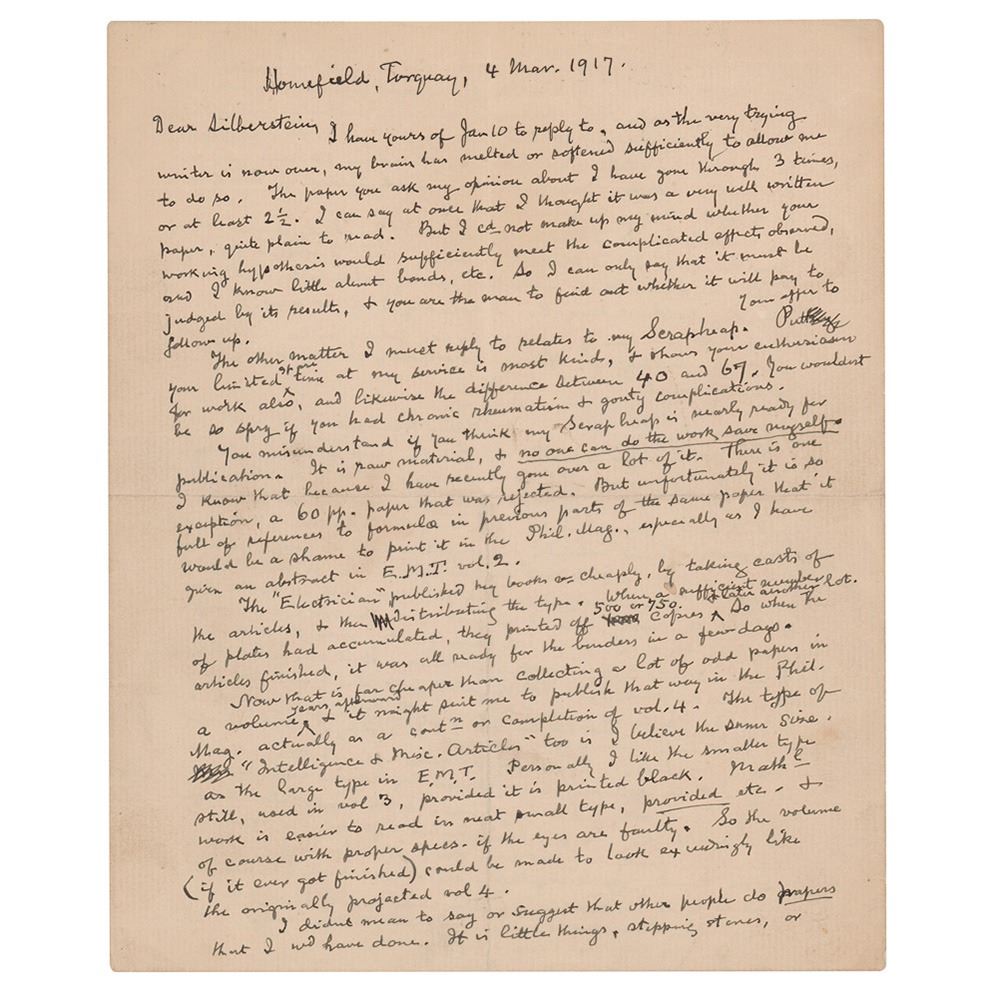 Homefield, Torquay, 4 Mar. 1917.
Dear Silberstein, I have yours of Jan 10 to reply to, and as the very trying
winter is now over, my brain has melted or softened sufficiently to allow me
to do so. The paper you ask my opinion about I have gone through 3 times,
or at least 2½. I can say at once that I thought it was a very well written
paper, quite plain to read. But I cd not make up my mind whether your
working hypothesis would sufficiently meet the complicated effects observed,
and I know little about bonds, etc. So I can only say that it must be
judged by its results, & you are the man to find out whether it will pay to
follow up.
The other matter I must reply to relates to my Scrapheap. Your offer to
your limited spare time at my service is most kind, & shows your enthusiasm
for work also, and likewise the difference between 40 and 67. You wouldnt
be so spry if you had chronic rheumatism & gouty complications.
You misunderstand if you think my Scrap heap is nearly ready for
publication. It is raw material, & no one can do the work save myself.
I know that because I have recently gone over a lot of it. There is one
exception, a 60 pp. paper that was rejected. But unfortunately it is so
full of references to formulae in previous parts of the same paper that it
would be a shame to print it in the Phil. Mag., especially as I have
given an abstract in E.M.T. vol. 2.
The "Electrician" published my books v. cheaply, by taking casts of
the articles, & then distributing the type. When a sufficient number
of plates had accumulated, they printed off 500 or 750 copies & later another lot. So when the
articles finished, it was all ready for the binders in a few days.
Now that is far cheaper than collecting a lot of odd papers in
a volume years afterward & it might suit me to publish that way in the Phil.
Mag. actually as a contn or completion of vol. 4. The type of
"Intelligence & Misc. Articles" too is I believe the same size
as the large type in E.M.T. Personally I like the smaller type
still, used in vol 3, provided it is printed black. Mathl
work is easier to read in neat small type, provided etc. &
of course with proper specs. if the eyes are faulty. So the volume
(if it ever got finished) could be made to look exceedingly like
the originally projected vol 4.
I didnt mean to say or suggest that other people do papers
that I wd have done. It is little things, stepping stones, or